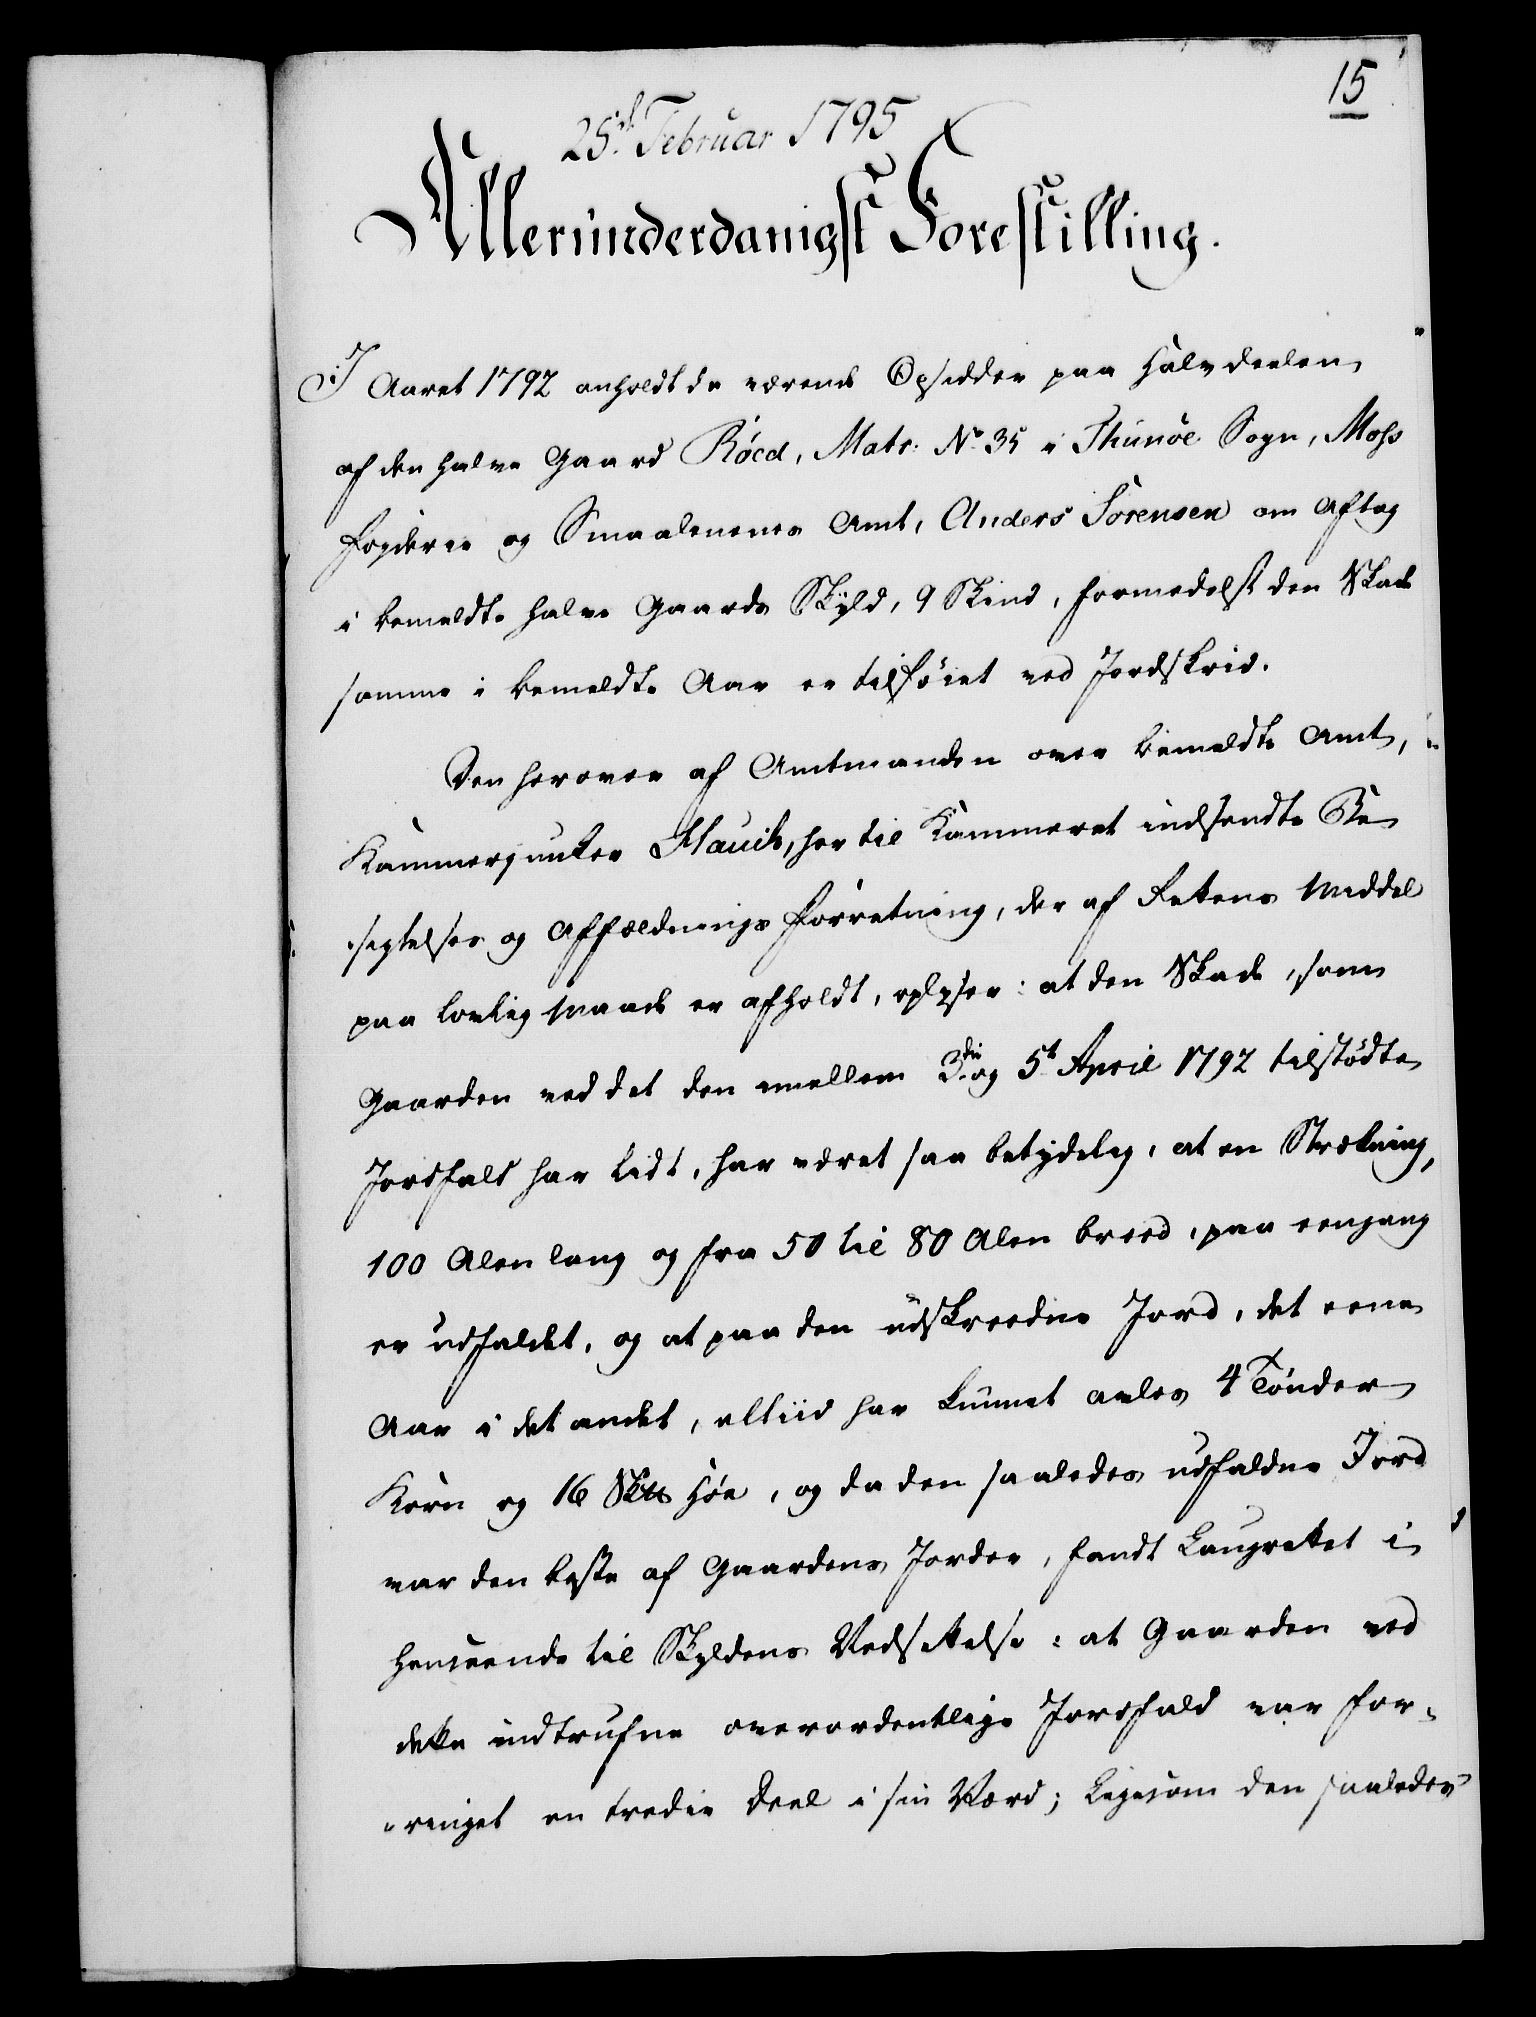 15
25d. Februar 1795
Allerunderdanigst Forestilling.
I Aaret 1792 anholdt da værende Opsidder paa Halvdeelen
af den halve Gaard Röed, Matr: No 35 i Thunöe Sogn, Moss
Fogderie og Smaalenenes Amt, Anders Sörensen om Aftag
i bemeldte halve Gaards Skyld, 9 Skind, formedelst den Skade
samme i bemeldte Aar er tilföiet ved Jordskrid.
Den herover af Amtmanden over bemeldte Amt,
Kammerjunker Hauch, her til Kammeret indsendte Be
sigtelses og Affældnings Forretning, der af Rettens Middel
paa lovlig Maade er afholdt, oplyser: at den Skade, som
Gaarden ved det den mellem 3die og 5te April 1792 tilstödte
Jordfald har lidt, har været saa betydelig, at en Strækning,
100 Alen lang og fra 50 til 80 Alen breed, paa eengang
er udfaldet, og at paa den udskreedne Jord, det eene
Aar i det andet, altiid har kunnet avles 4 Tönder
Korn og 16 Sk℔ Höe, og da den saaledes udfaldne Jord
var den beste af Gaardens Jorder, fandt Laugrettet i
Henseende til Skyldens Nedsettelse: at Gaarden ved
dette indtrufne overordentlige Jordfald var for-
ringet en tredie Deel i sin Værd; ligesom den saaledes